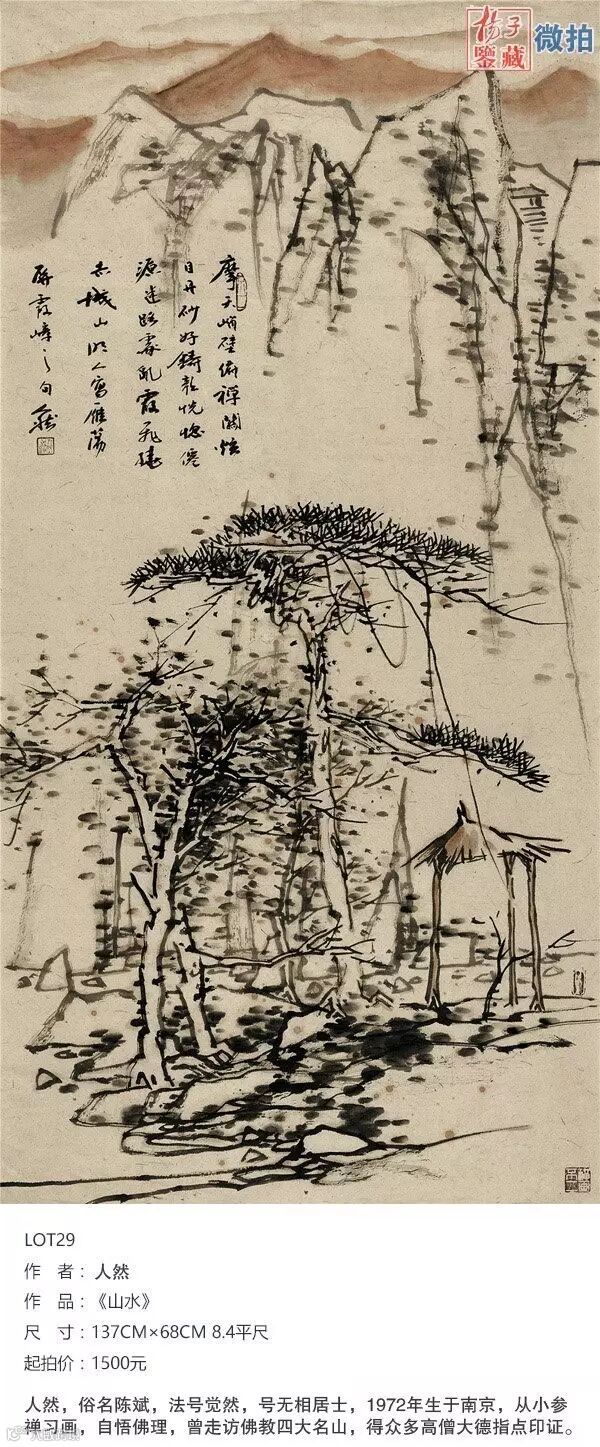 楊子
鑒藏
微拍
摩天峭壁俯禪關怪
日丹砂好鑄顏恍惚僊
源迷路處亂霞飛繞
赤城山明人寫雁蕩
屏霞嶂之句人然
LOT29
作 者：人然
作 品：《山水》
尺 寸：137CM×68CM 8.4平尺
起拍价：1500元
人然，俗名陈斌，法号觉然，号无相居士，1972年生于南京，从小参
禅习画，自悟佛理，曾走访佛教四大名山，得众多高僧大德指点印证。